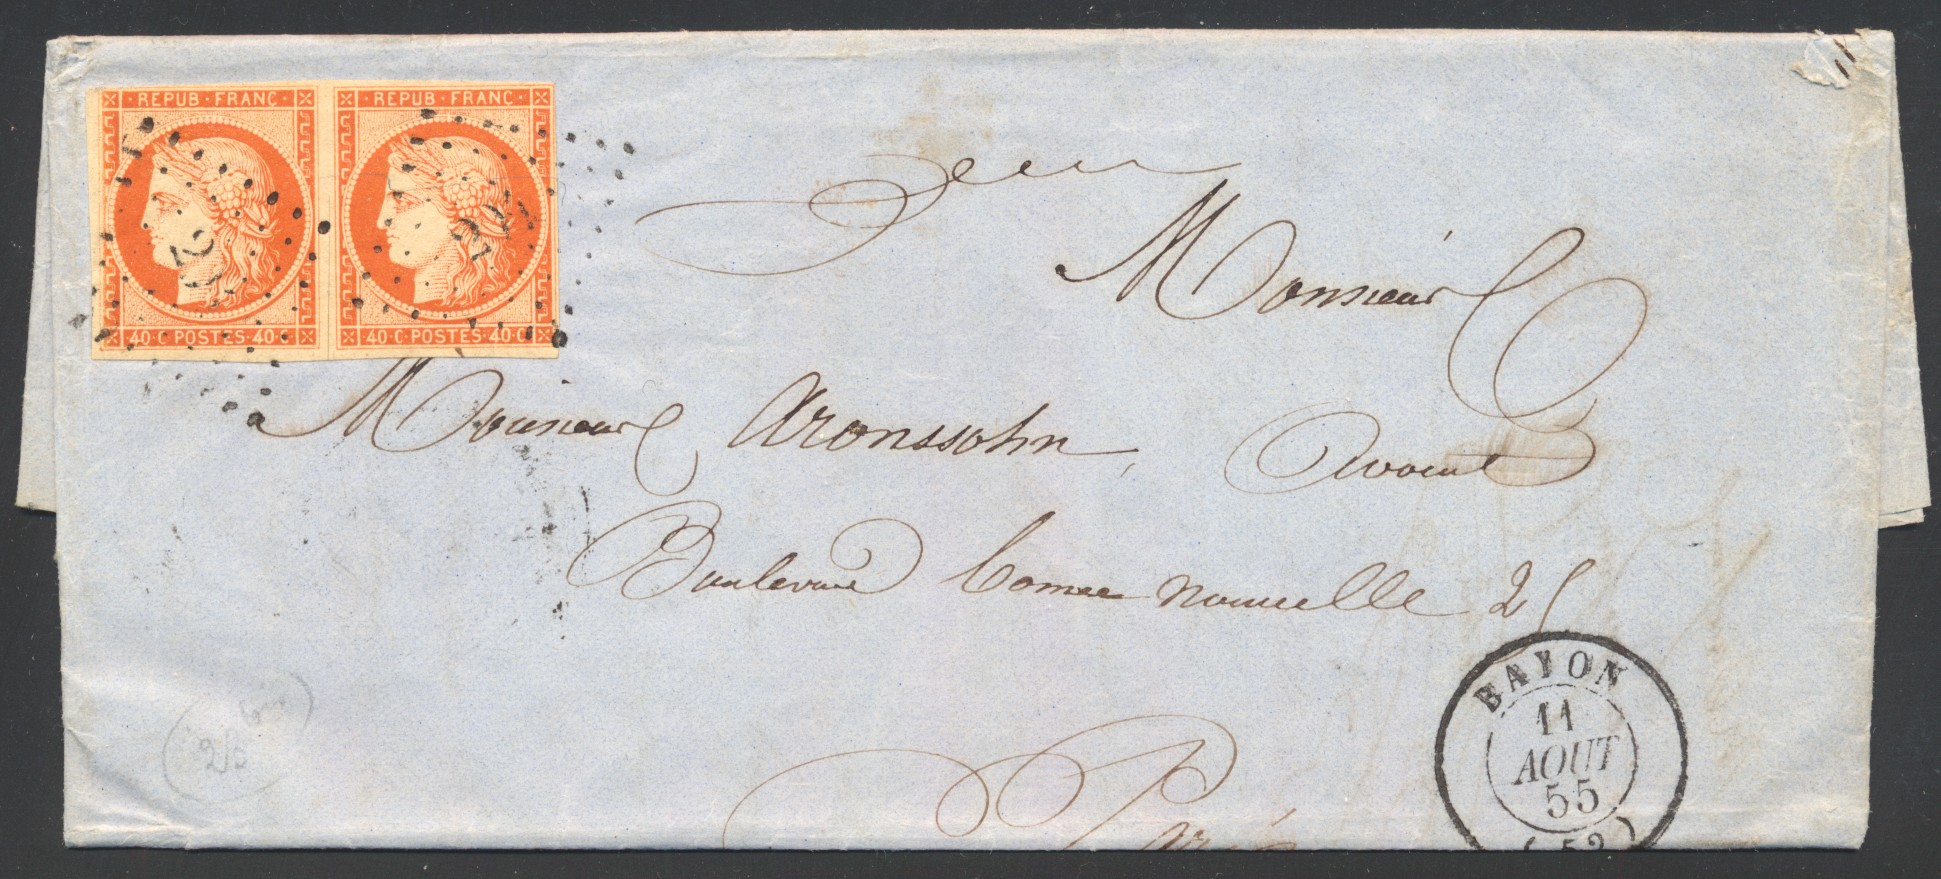 REPUB · FRANC · REPUB · FRANC ·
40 · C POSTES · 40 · C 40 · C POSTES · 40 · C
Monsieur
Monsieur Aronssohn, Avocat
Boulevard bonne nouvelle 25
Paris
BAYON
11
AOUT
55
(52)